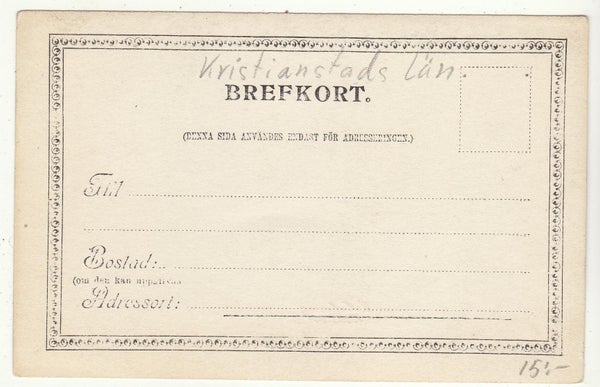 Kristianstads län.
BREFKORT.
(DENNA SIDA ANVÄNDES ENDAST FÖR ADRESSERINGEN.)
Till
Bostad:
(om den kan uppgifvas)
Adressort:
15:-